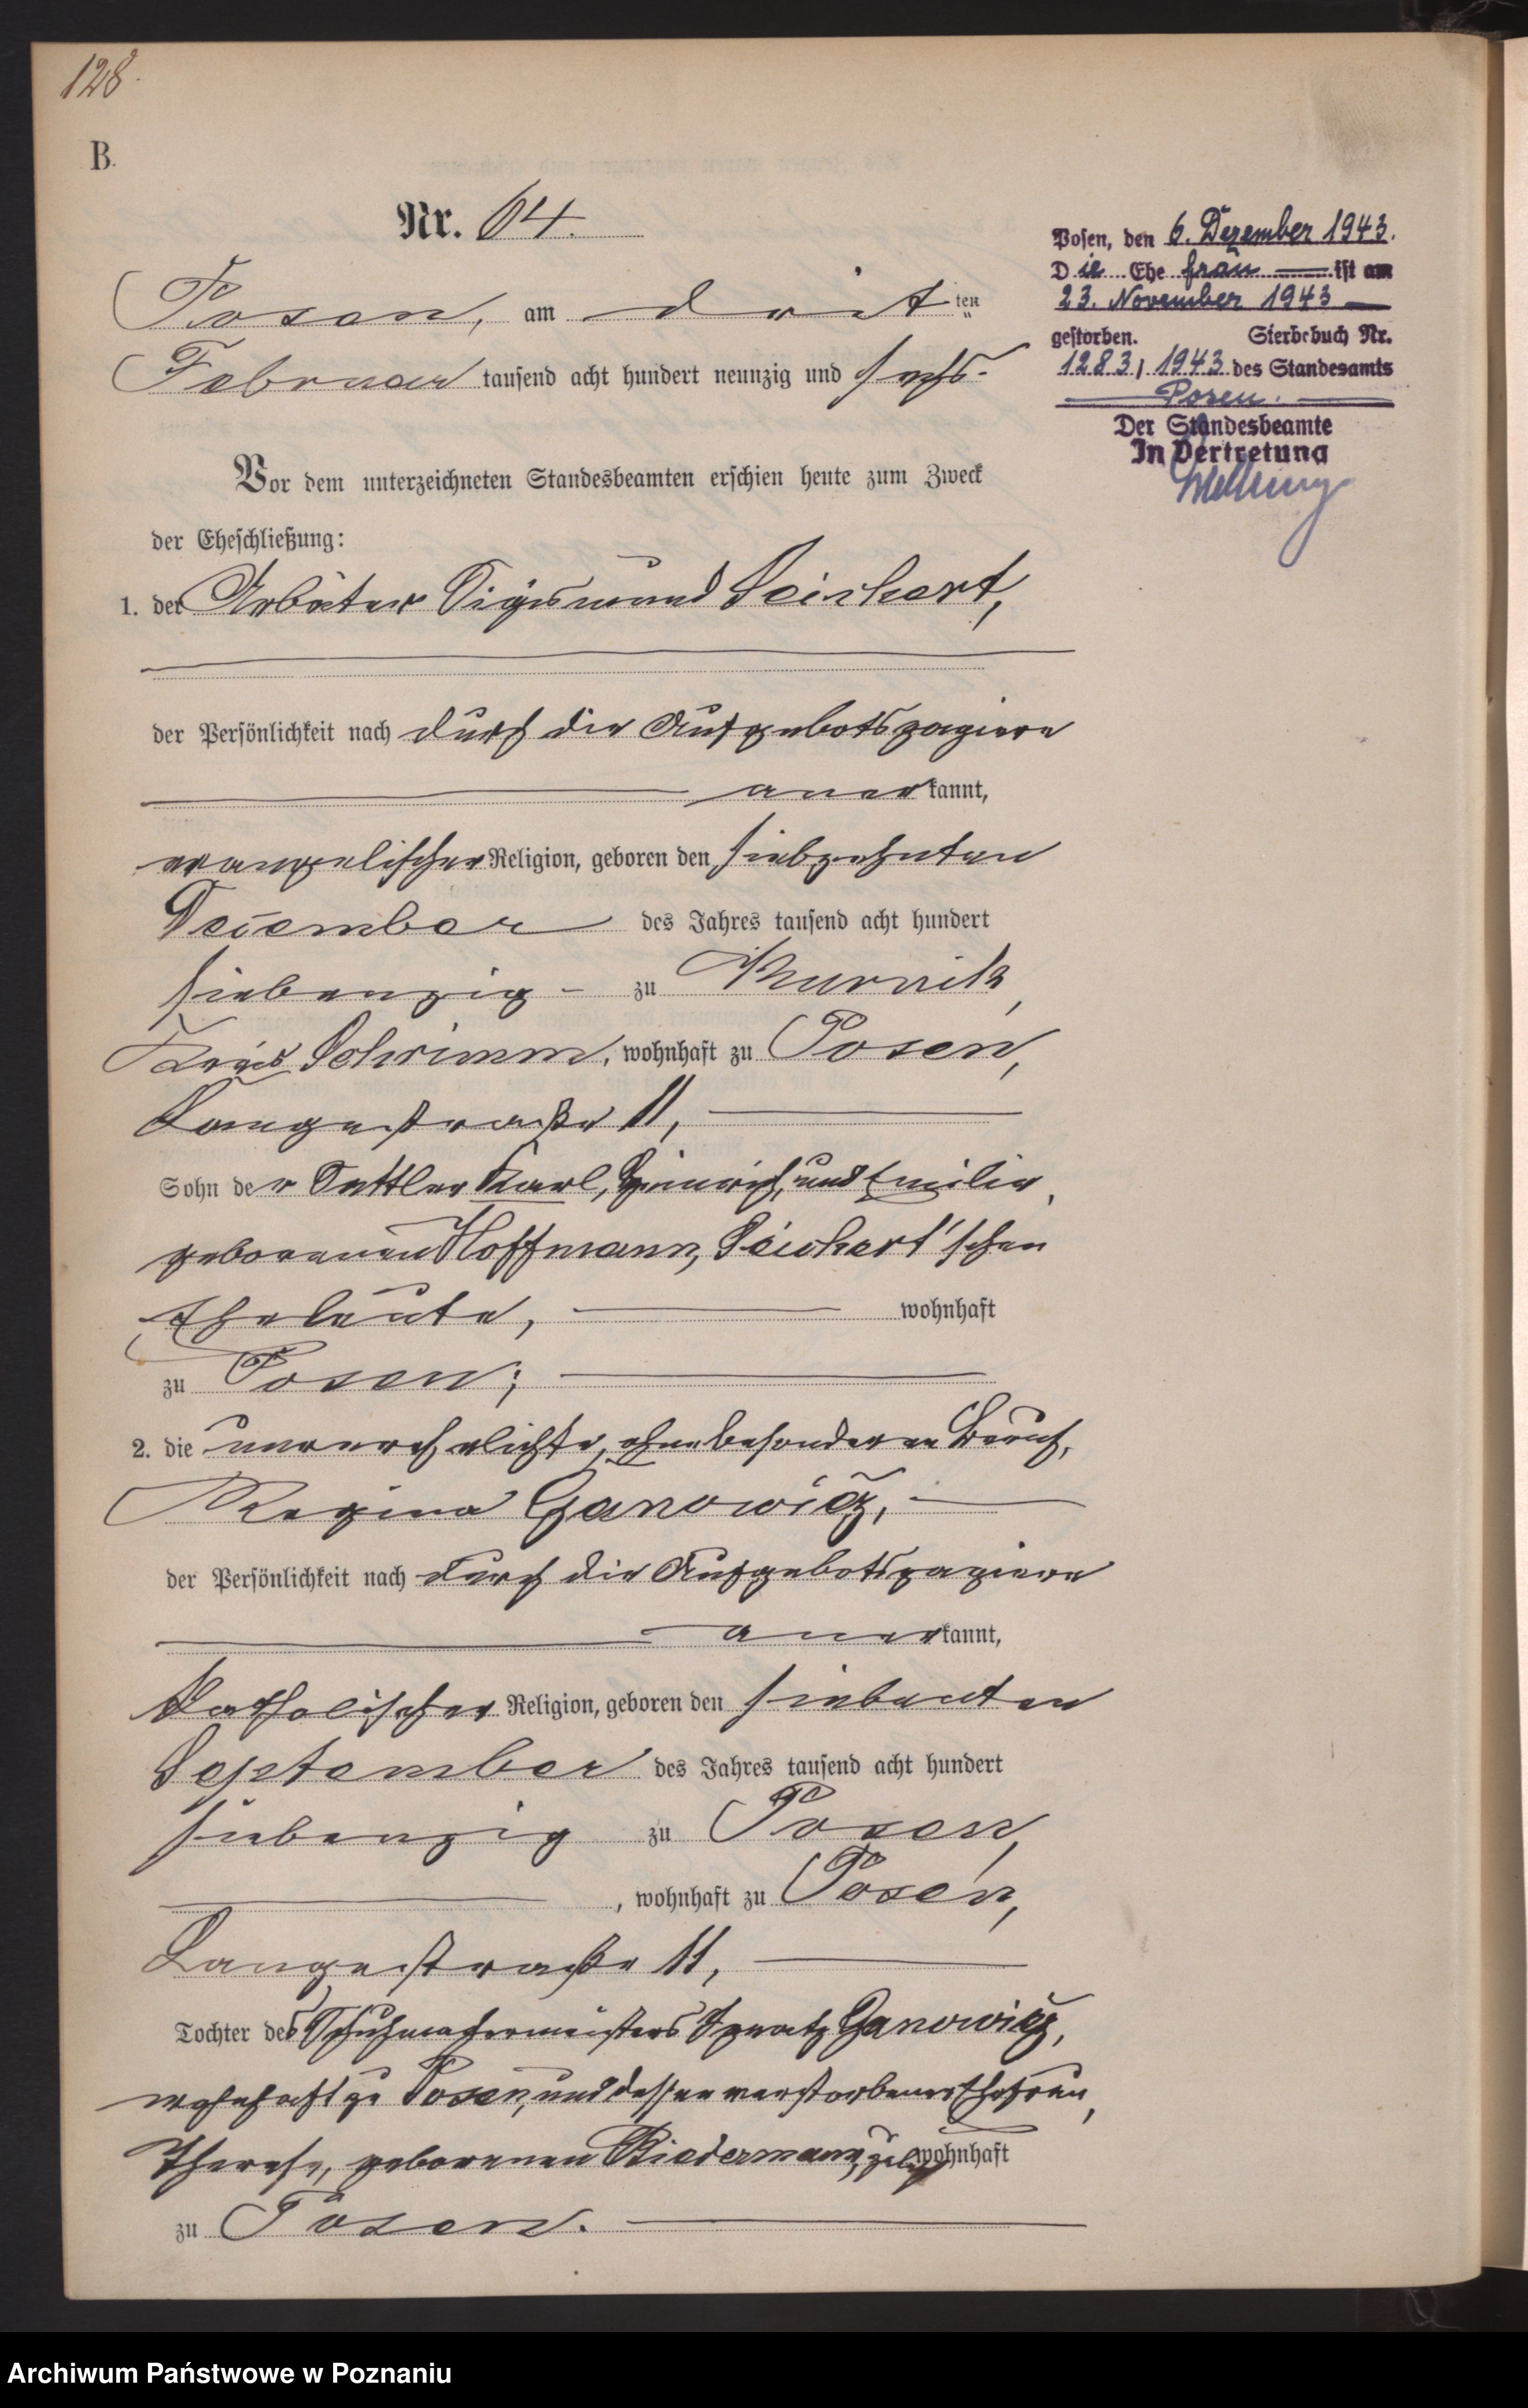 128.
B.
Nr. 64.
Posen, am dritten
Februar tausend acht hundert neunzig und sechs-
Vor dem unterzeichneten Standesbeamten erschien heute zum Zweck
der Eheschließung:
1. der Arbeiter Sigismund Seichert,
der Persönlichkeit nach durch die Aufgebotspapiere
anerkannt,
evangelischer Religion, geboren den siebzehnten
Dezember des Jahres tausend acht hundert
siebenzig - zu Kurnik,
Kreis Schrimm, wohnhaft zu Posen,
Langestraße 11,
Sohn der Sattler Karl, Heinrich, und Emilie,
geborenen Hoffmann, Seichert'schen
Eheleute, wohnhaft
zu Posen;
2. die unverehelichte, ohne besonderen Beruf,
Regina Ganowicz,
der Persönlichkeit nach durch die Aufgebotspapiere
anerkannt,
katholischer Religion, geboren den siebenten
September des Jahres tausend acht hundert
siebenzig zu Posen,
, wohnhaft zu Posen,
Langestraße 11,
Tochter des Schuhmachermeisters Ignatz Ganowicz,
wohnhaft zu Posen, und dessen verstorbener Ehefrau,
Therese, geborenen Biedermann, wohnhaft
zu Posen.
Posen, den 6. Dezember 1943.
Die Ehefrau ist am
23. November 1943
gestorben. Sterbebuch Nr.
1283/1943 des Standesamts
Posen.
Der Standesbeamte
In Vertretung
Archiwum Państwowe w Poznaniu